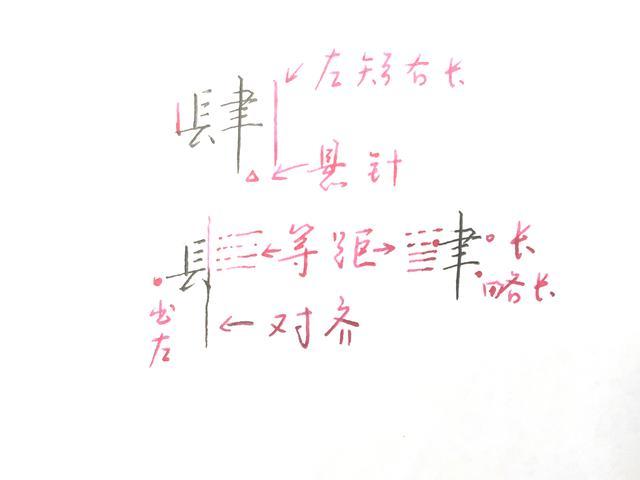 左短右长
肆
悬针
镸 等距 聿 长
略长
出左
对齐